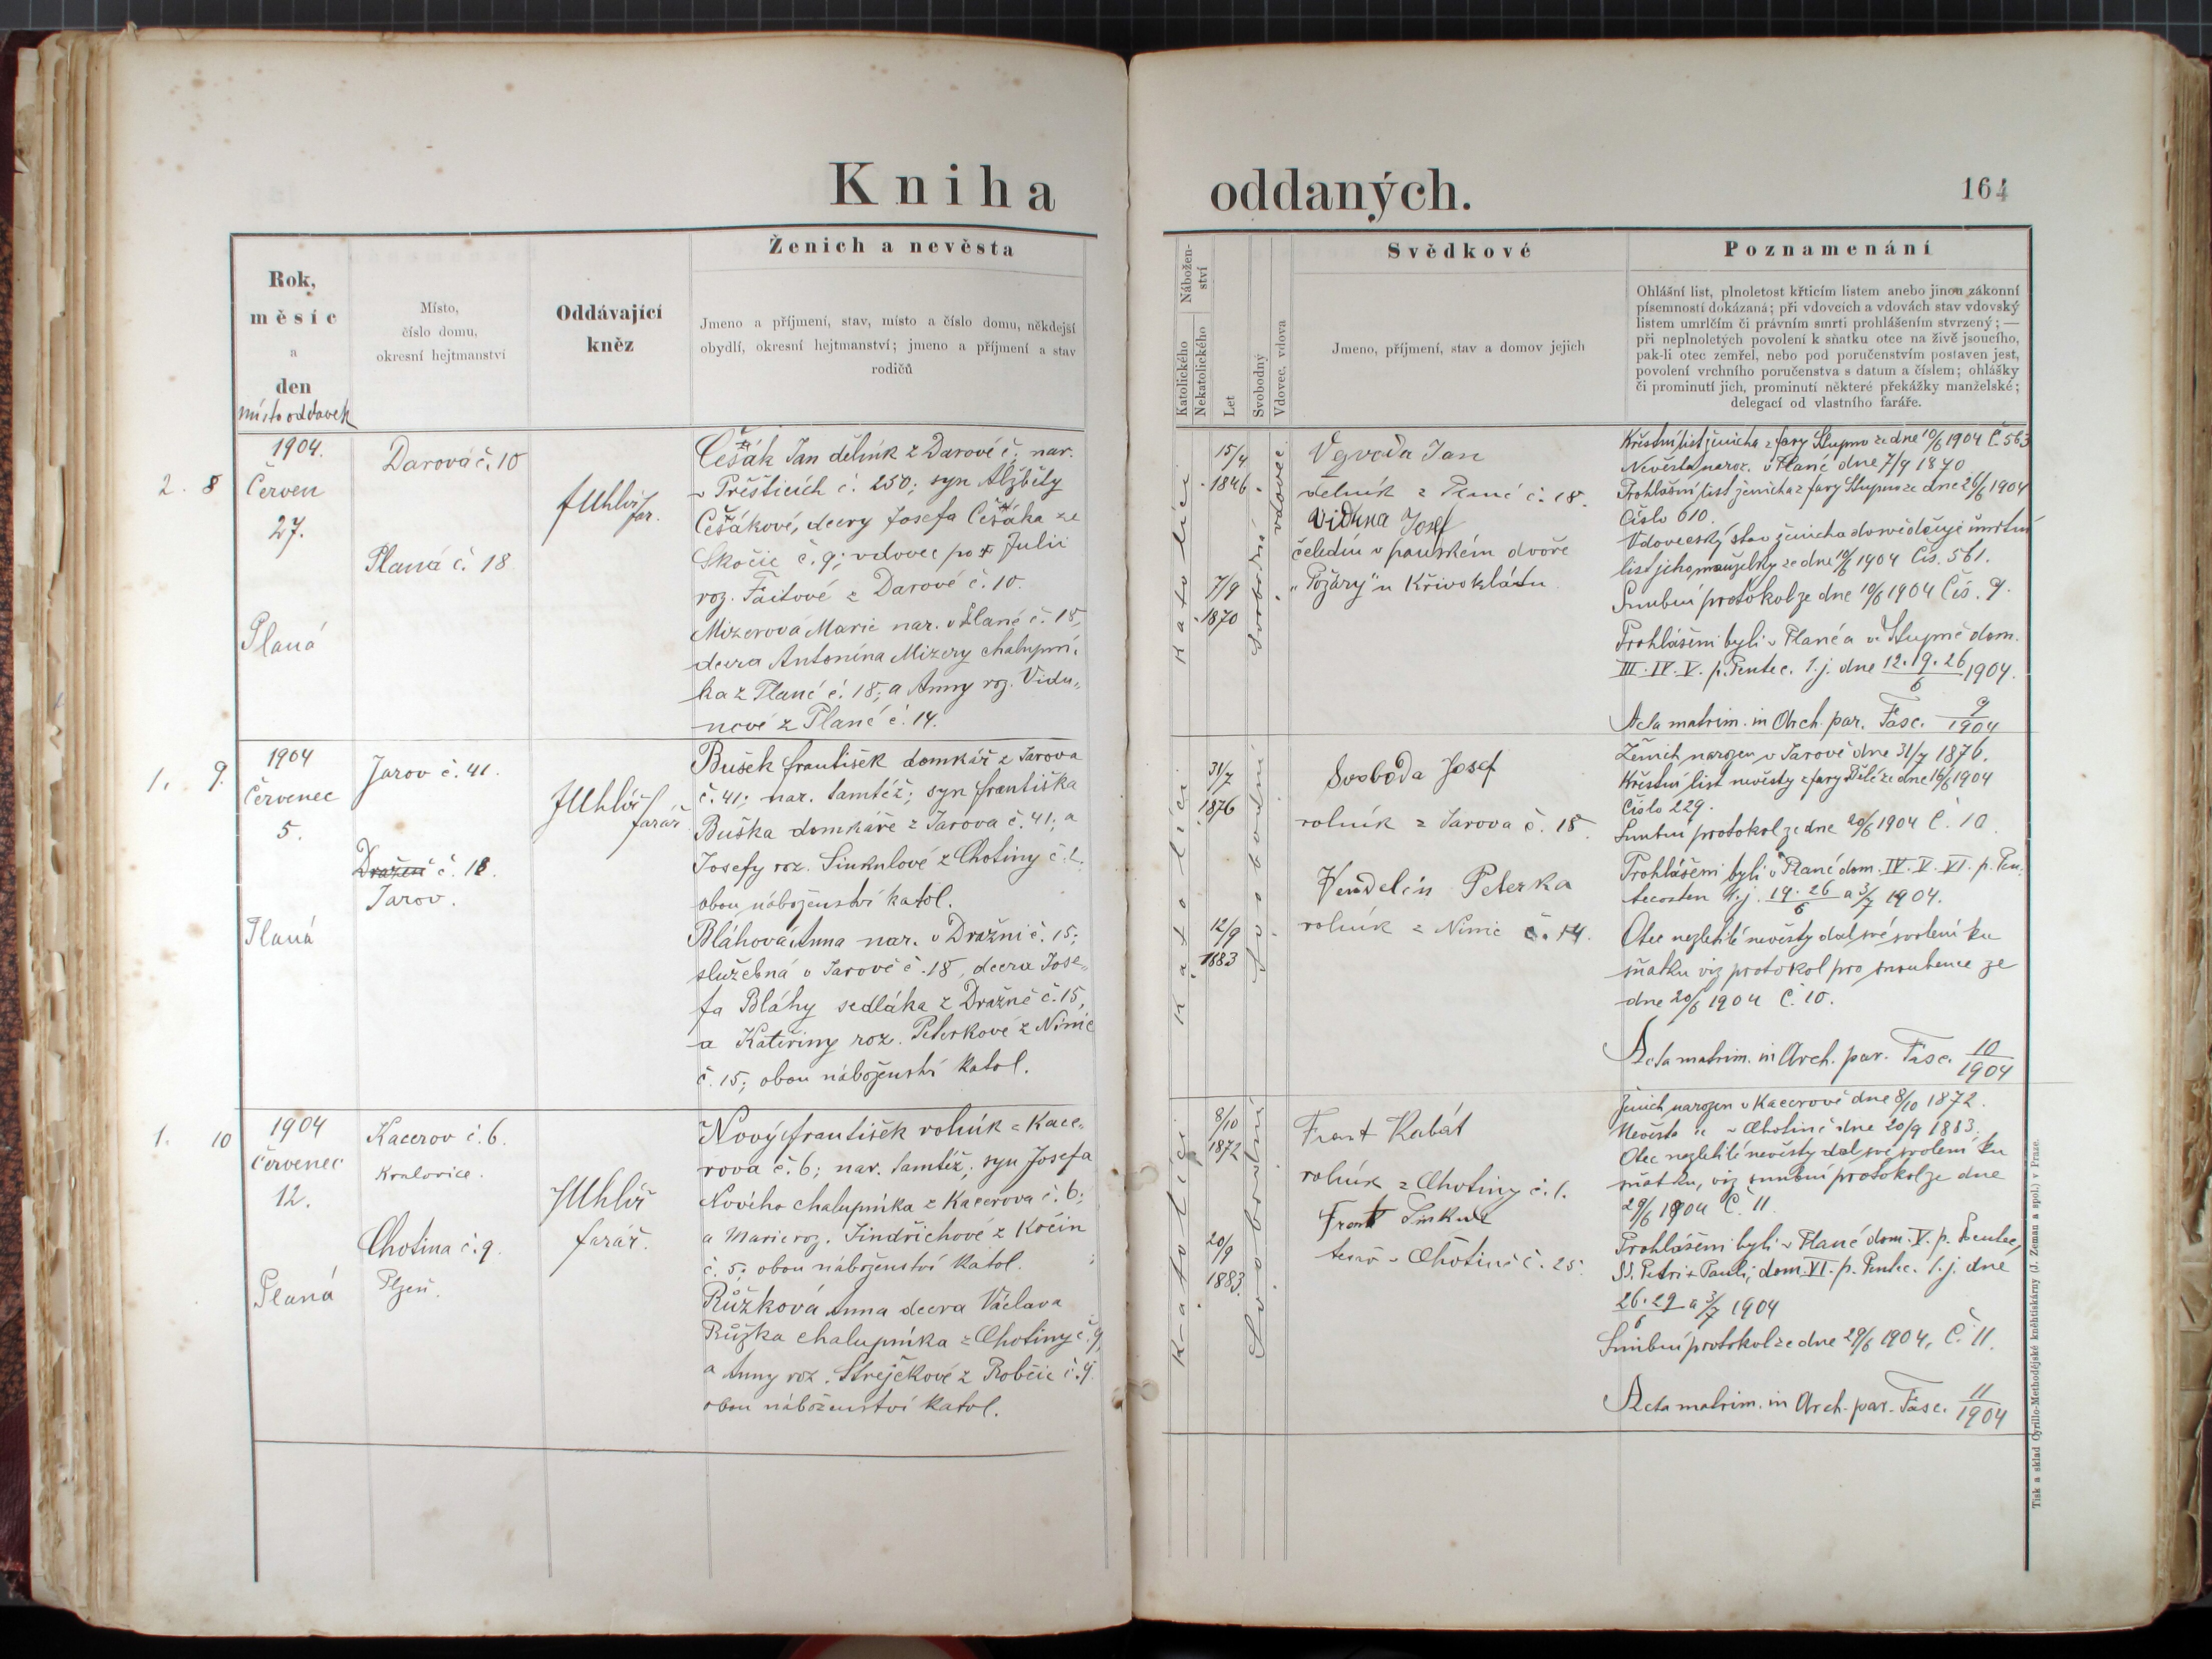 Kniha oddaných.
164
Rok,
měsíc
a
den
místo oddavek
Místo,
číslo domu,
okresní hejtmanství
Oddávající
kněz
Ženich a nevěsta
Jmeno a příjmení, stav, místo a číslo domu, někdejší
obydlí, okresní hejtmanství; jmeno a příjmení a stav
rodičů
Nábožen-
ství
Katolického
Nekatolického
Let
Svobodný
Vdovec, vdova
Svědkové
Jmeno, příjmení, stav a domov jejich
Poznamenání
Ohlášní list, plnoletost křticím listem anebo jinou zákonní
písemností dokázaná; při vdovcích a vdovách stav vdovský
listem umrlčím či právním smrti prohlášením stvrzený; —
při neplnoletých povolení k sňatku otce na živě jsoucího,
pak-li otec zemřel, nebo pod poručenstvím postaven jest,
povolení vrchního poručenstva s datum a číslem; ohlášky
či prominutí jich, prominutí některé překážky manželské;
delegací od vlastního faráře.
2. 8
1904.
Červen
27.
Planá
Darová č. 10
Planá č. 18
JUhlíř
far.
Češák Jan dělník z Darové č. nar.
v Přešticích č. 250; syn Alžběty
Češákové, dcery Josefa Češáka ze
Skočic č. 9; vdovec po Julii
roz. Faitové z Darové č. 10.
Mizerová Marie nar. v Plané č. 18,
dcera Antonína Mizery chalupní-
ka z Plané č. 18; a Anny roz. Vidu-
nové z Plané č. 14.
Katolíci
15/4
1846
7/9
1870
svobodná
vdovec
Vyvoda Jan
dělník z Plané č. 18.
Viduna Josef
čeledín v panském dvoře
„Požáry" u Křivoklátu
Křestní list ženicha z fary Stupno ze dne 10/6 1904 Č. 563
Nevěsta naroz. v Plané dne 7/9 1870
Prohlášní list ženicha z fary Stupno ze dne 26/6 1904
Číslo 610.
Vdovecský stav ženicha dosvědčuje úmrtní
list jeho manželky ze dne 10/6 1904 Čís. 561.
Snubní protokol ze dne 10/6 1904 Čís. 9.
Prohlášeni byli v Plané a ve Stupně dom.
III. IV. V. p. Pentec. t. j. dne 12. 19. 26/6 1904.
Acta matrim. in Arch. par. Fasc. 9/1904
1. 9.
1904
Červenec
5.
Planá
Jarov č. 41.
Dražeň č. 18.
Jarov.
JUhlíř
farář
Bušek František domkář z Jarova
č. 41; nar. tamtéž; syn Františka
Buška domkáře z Jarova č. 41; a
Josefy roz. Sinkulové z Chotiny č. 2.
obou náboženství katol.
Bláhová Anna nar. v Dražni č. 15;
služebná v Jarově č. 18, dcera Jose-
fa Bláhy sedláka z Dražně č. 15,
a Kateřiny roz. Peterkové z Nimic
č. 15; obou náboženství katol.
Katolíci
31/7
1876
12/9
1883
Svobodní
Svoboda Josef
rolník z Jarova č. 18.
Vendelín Peterka
rolník z Nimic č. 14.
Ženich narozen v Jarově dne 31/7 1876.
Křestní list nevěsty z fary Bělé ze dne 16/6 1904
Číslo 229.
Snubní protokol ze dne 20/6 1904 Č. 10.
Prohlášeni byli v Plané dom. IV. V. VI. p. Pen-
tecosten t. j. 19. 26/6 a 3/7 1904.
Otec nezletilé nevěsty dal své svolení ku
sňatku viz protokol pro snoubence ze
dne 20/6 1904 Č. 10.
Acta matrim. in Arch. par. Fasc. 10/1904
1. 10
1904
Červenec
12.
Planá
Kacerov č. 6.
Kralovice.
Chotina č. 9.
Plzeň.
JUhlíř
farář.
Nový František rolník z Kace-
rova č. 6; nar. tamtéž; syn Josefa
Nového chalupníka z Kacerova č. 6;
a Marie roz. Jindřichové z Kočin
č. 5; obou náboženství katol.
Růžková Anna dcera Václava
Růžka chalupníka z Chotiny č. 9,
a Anny roz. Strejčkové z Robčic č. 9.
obou náboženství katol.
Katolíci
8/10
1872
20/9
1883.
Svobodní
Frant Kabát
rolník z Chotiny č. 1.
Frant Sinkule
tesař v Chotině č. 25.
Ženich narozen v Kacerově dne 8/10 1872.
Nevěsta " v Chotině dne 20/9 1883.
Otec nezletilé nevěsty dal své svolení ku
sňatku, viz snubní protokol ze dne
29/6 1904 Č. 11.
Prohlášeni byli v Plané dom. V. p. Pentec,
SS. Petri & Pauli; dom. VI. p. Pentec. t. j. dne
26. 29/6 a 3/7 1904
Snubní protokol ze dne 29/6 1904, Č. 11.
Acta matrim. in Arch. par. Fasc. 11/1904
Tisk a sklad Cyrillo-Methodějské kněhtiskárny (J. Zeman a spol.) v Praze.